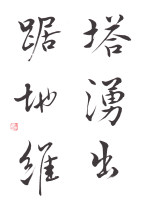 塔湧出
踞地維